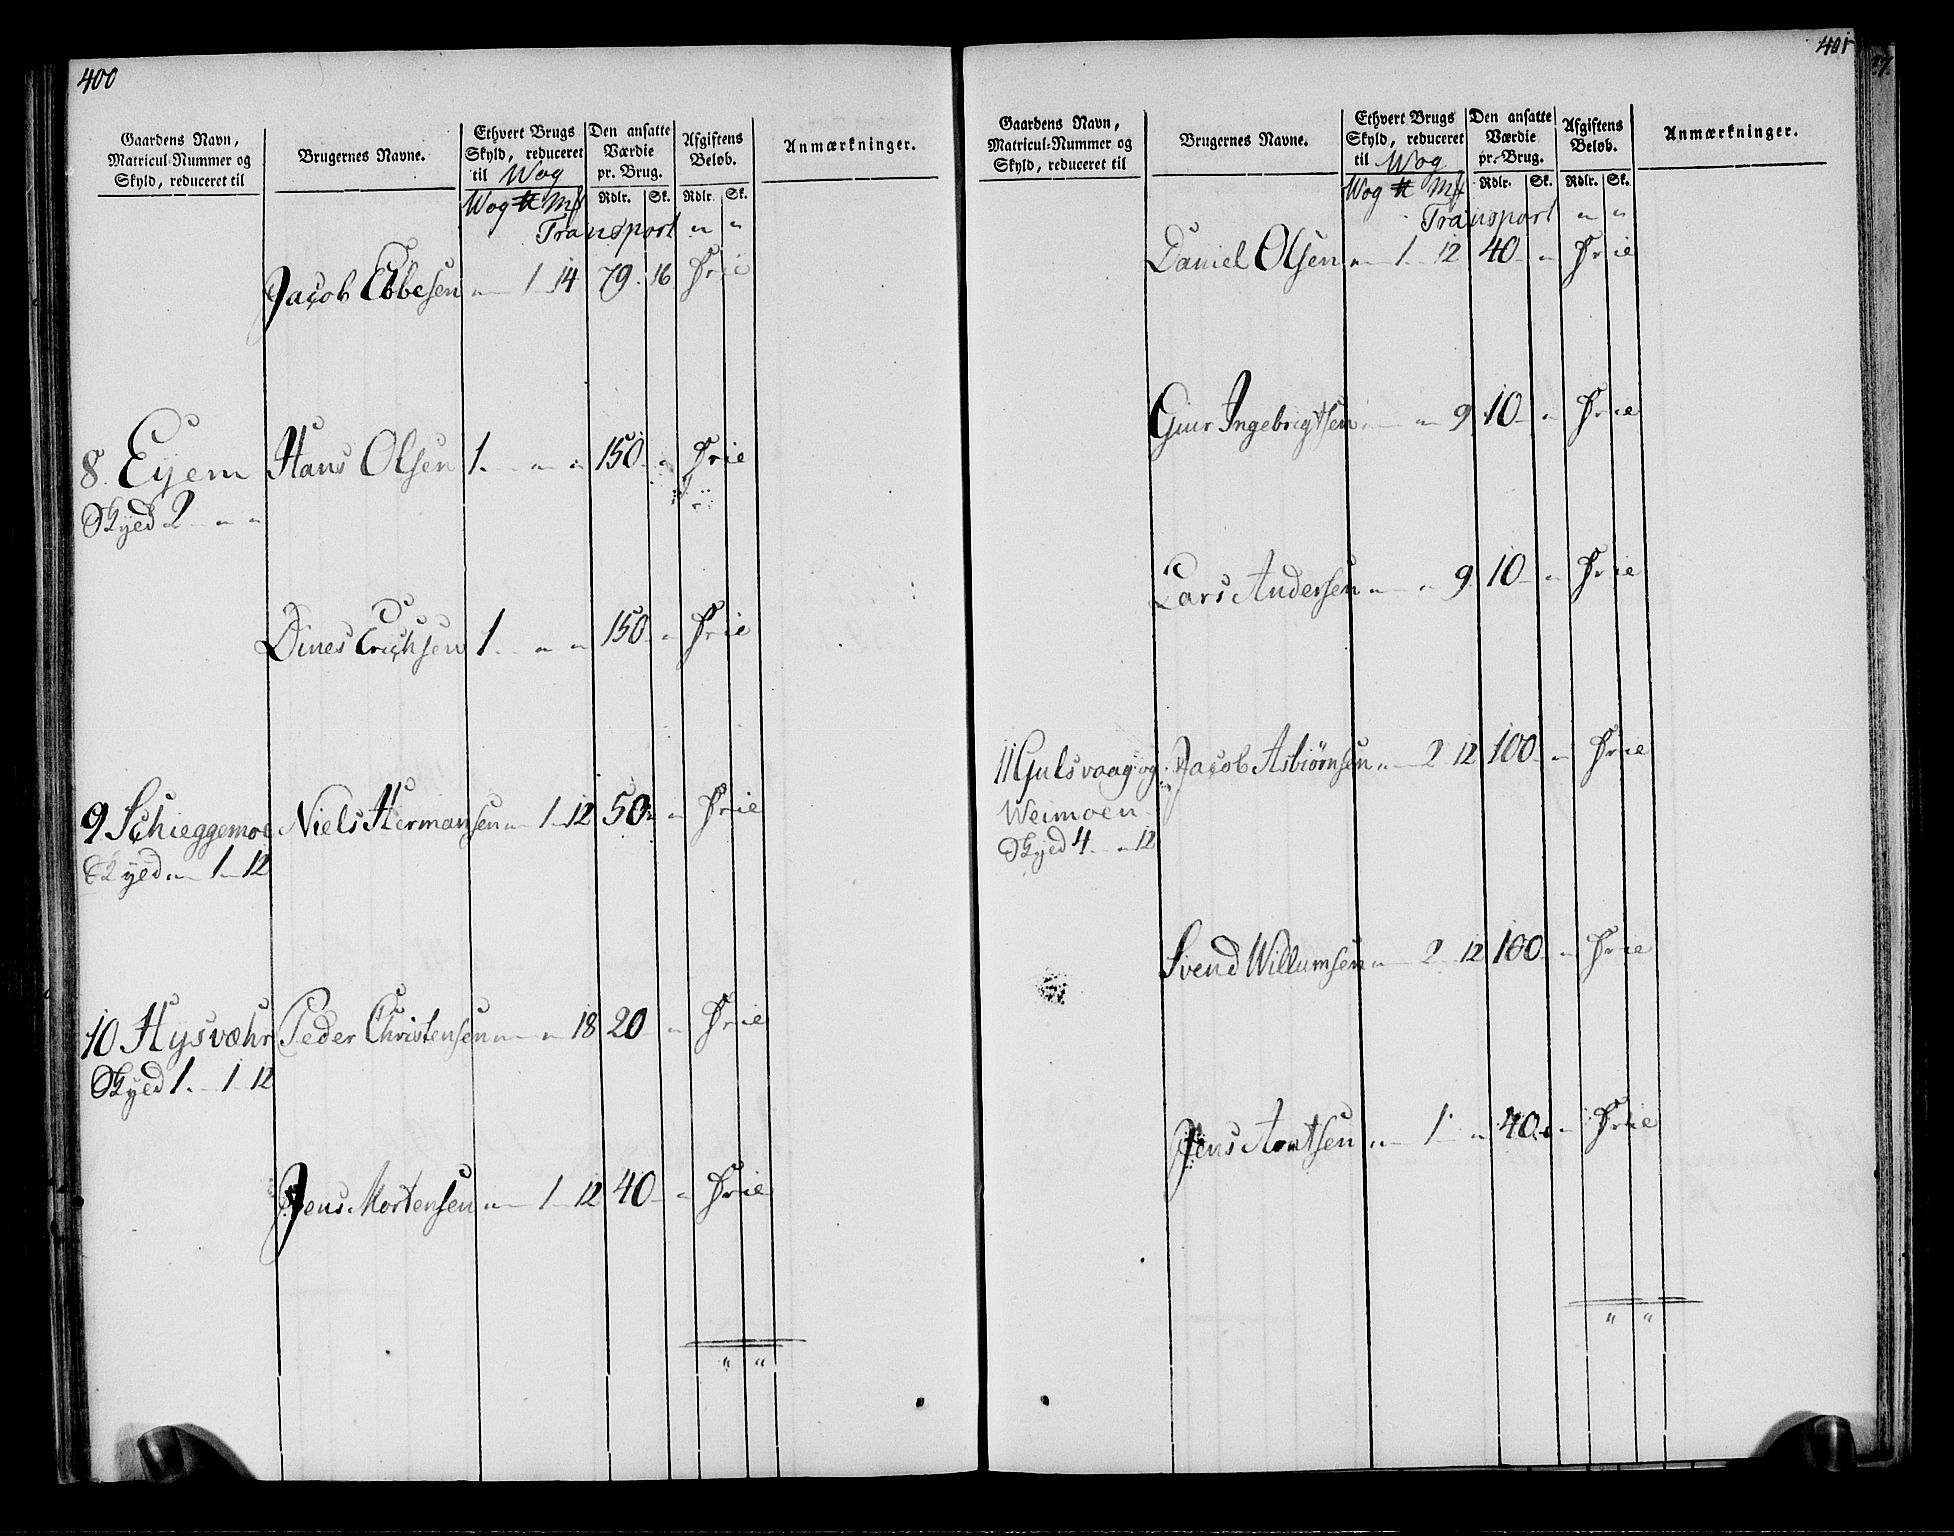 400
Gaardens Navn,
Matricul-Nummer og
Skyld, reduceret til
Brugernes Navne.
Ethvert Brugs
Skyld, reduceret
til Wog
Wog ℔ Mk
Den ansatte
Værdie
pr. Brug.
Rdlr. Sk.
Afgiftens
Beløb.
Rdlr. Sk.
Anmærkninger.
Transport " "
Jacob Ebbesen " 1 14 79 . 16 Frie
8. Eyem Hans Olsen 1. " " 150 " Frie
Skyed 2 " "
Dines Erichsen 1. " " 150 " Frie
9 Schieggemoe Niels Hermansen " 1 12 50 " Frie
Skyed " 1 12
10 Hysvæhr Peder Christensen " " 18 20 " Frie
Skyed 1. 1 12
Jens Mortensen " 1 12 40 " Frie
" "
401
Gaardens Navn,
Matricul-Nummer og
Skyld, reduceret til
Brugernes Navne.
Ethvert Brugs
Skyld, reduceret
til Wog
Wog ℔ Mk
Den ansatte
Værdie
pr. Brug.
Rdlr. Sk.
Afgiftens
Beløb.
Rdlr. Sk.
Anmærkninger.
Transport " "
Daniel Olsen " 1 12 40 " Frie
Giur Ingebrigtsen " " 9 10 " Frie
Lars Andersen " " 9 10 " Frie
11 Gulsvaag og Jacob Asbiørnsen " 2 12 100 " Frie
Weimoen
Skyed 4 " 12
Svend Willumsen " 2 12 100 " Frie
Jens Arntsen " 1 " 40 " Frie
" "